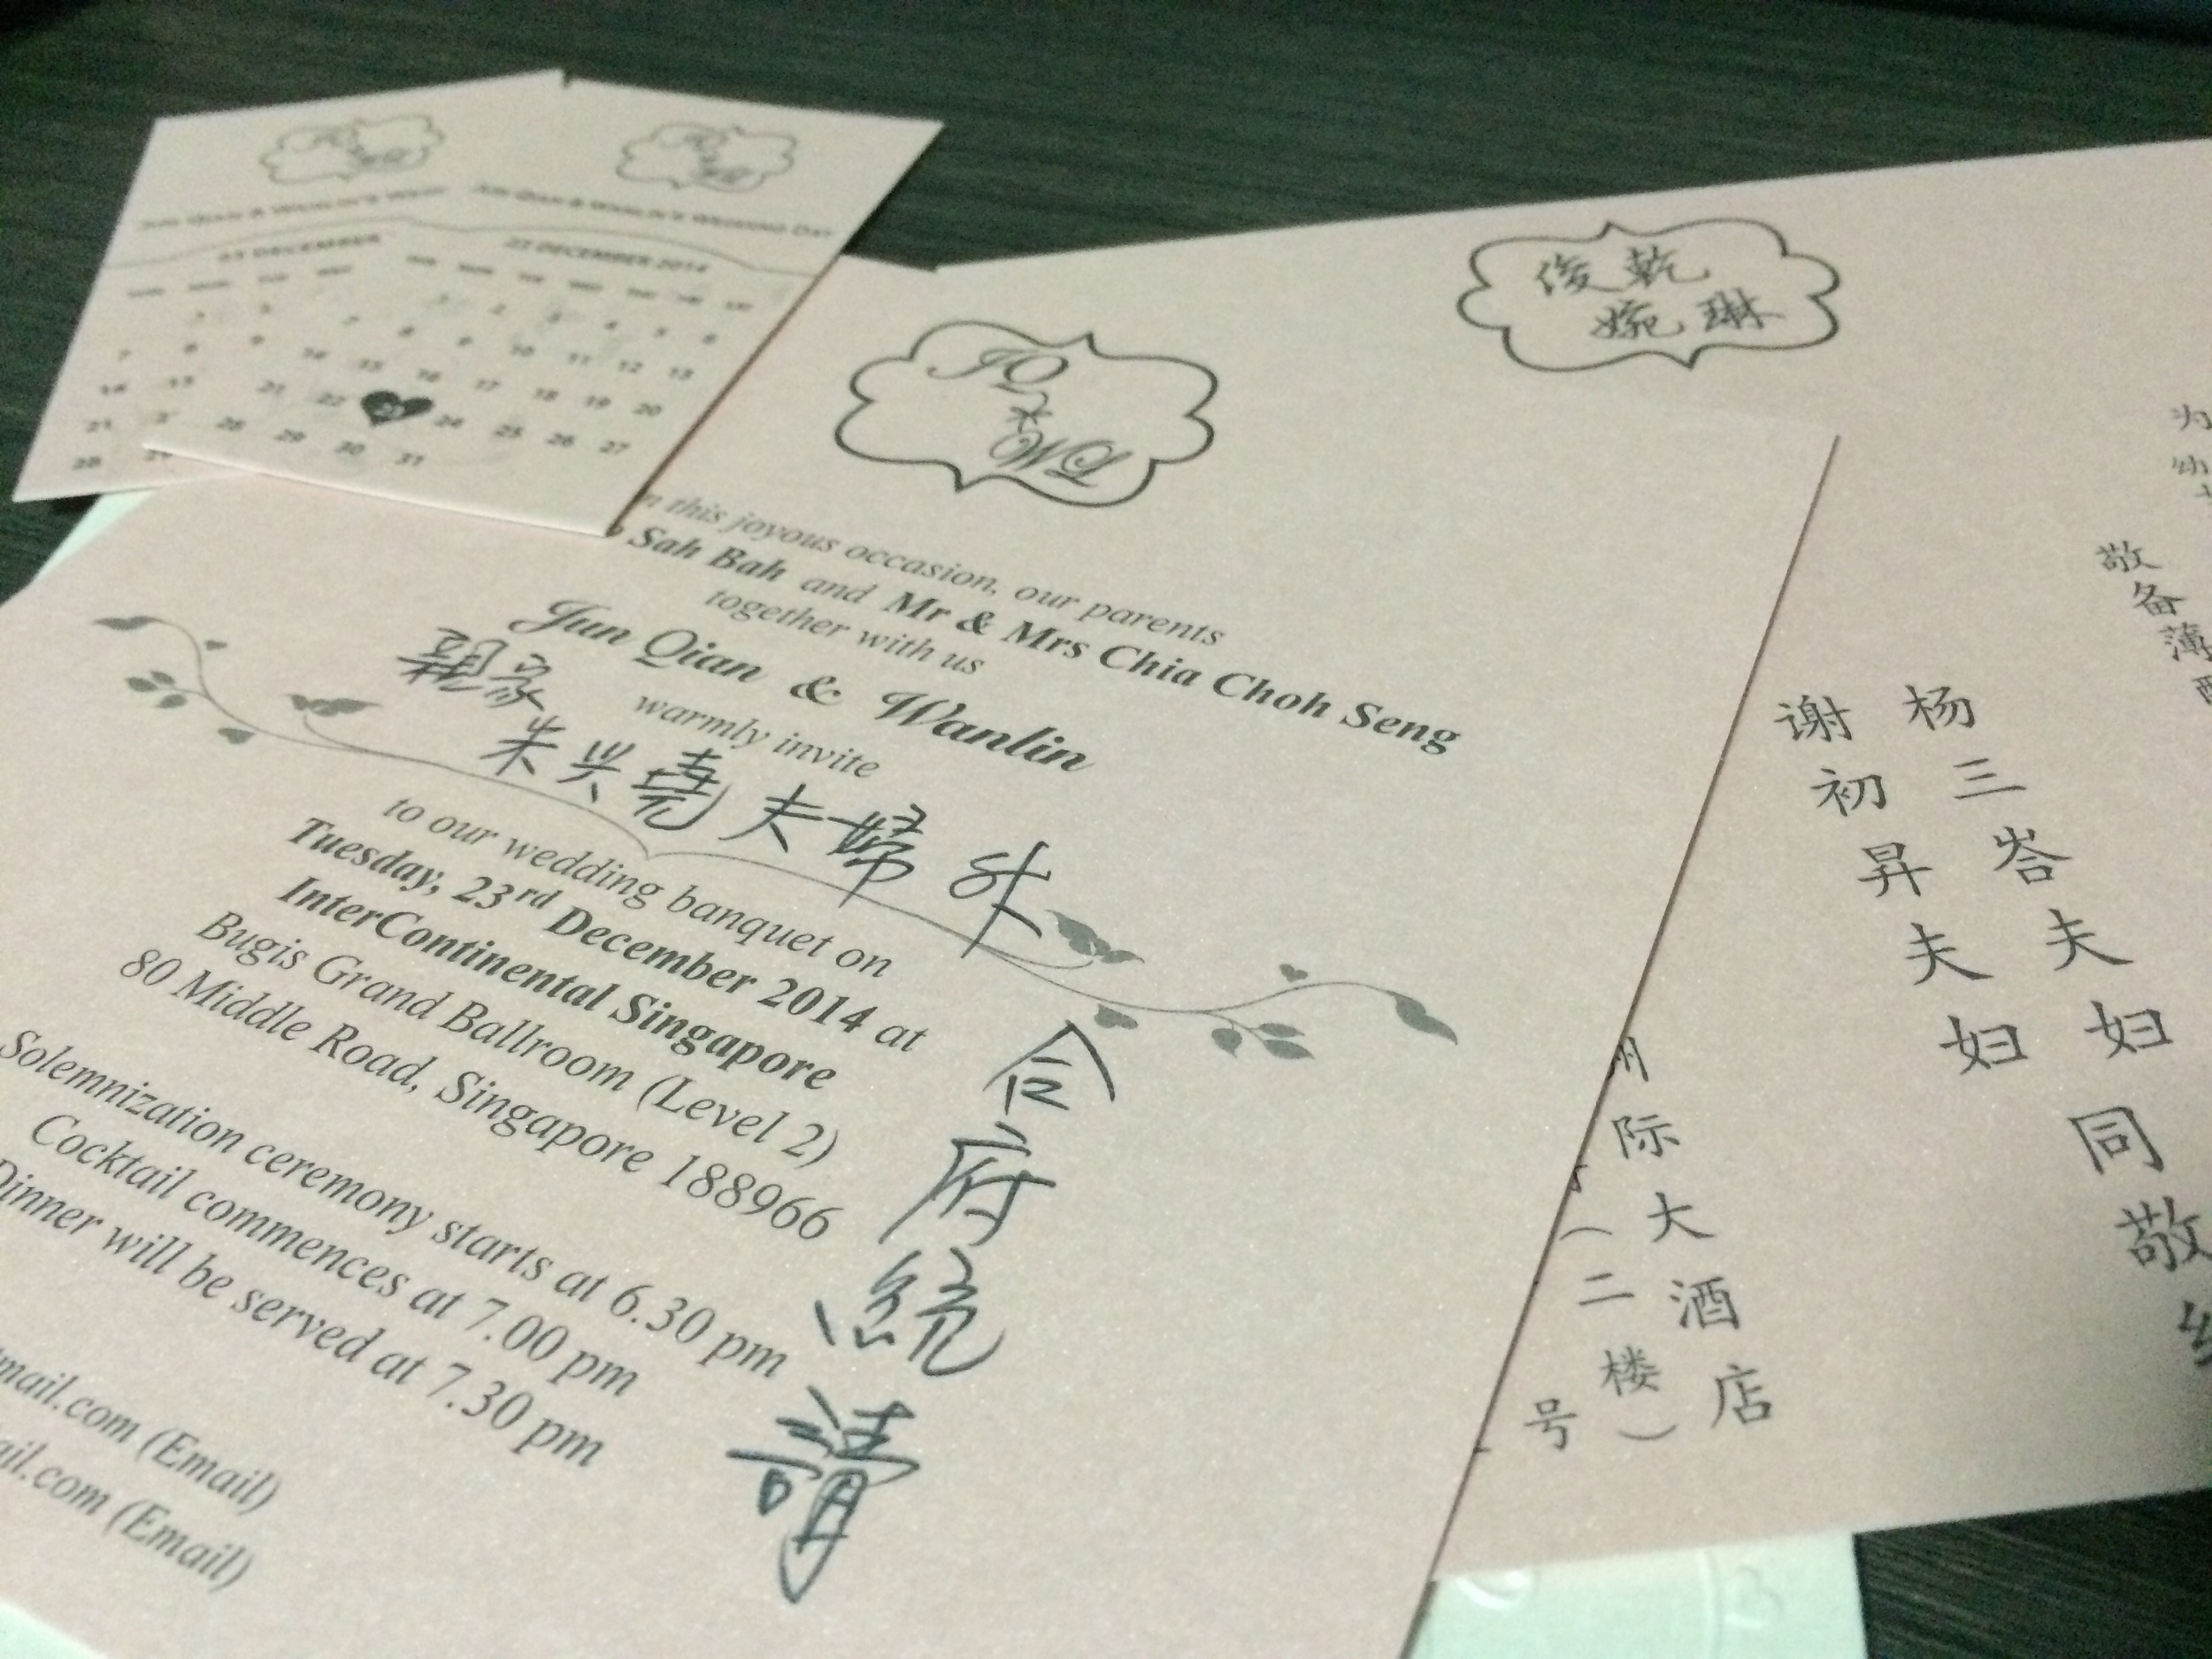 JUN QIAN & WANLIN'S WEDDING DAY
23 DECEMBER
23 DECEMBER 2014
2 3 4 5 6
7 8 9 10 11 12 13
14 15 16 17 18 19 20
21 22 23 24 25 26 27
28 29 30 31
JQ
&
WL
n this joyous occasion, our parents
Sah Bah and Mr & Mrs Chia Choh Seng
together with us
Jun Qian & Wanlin
warmly invite
親家
朱兴堯夫婦
to our wedding banquet on
Tuesday, 23rd December 2014 at
InterContinental Singapore
Bugis Grand Ballroom (Level 2)
80 Middle Road, Singapore 188966
Solemnization ceremony starts at 6.30 pm
Cocktail commences at 7.00 pm
Dinner will be served at 7.30 pm
mail.com (Email)
ail.com (Email)
合府統請
俊乾
婉琳
为幼
敬备薄
杨三峇夫妇
谢初昇夫妇
同敬
际大酒店
(二楼)
号